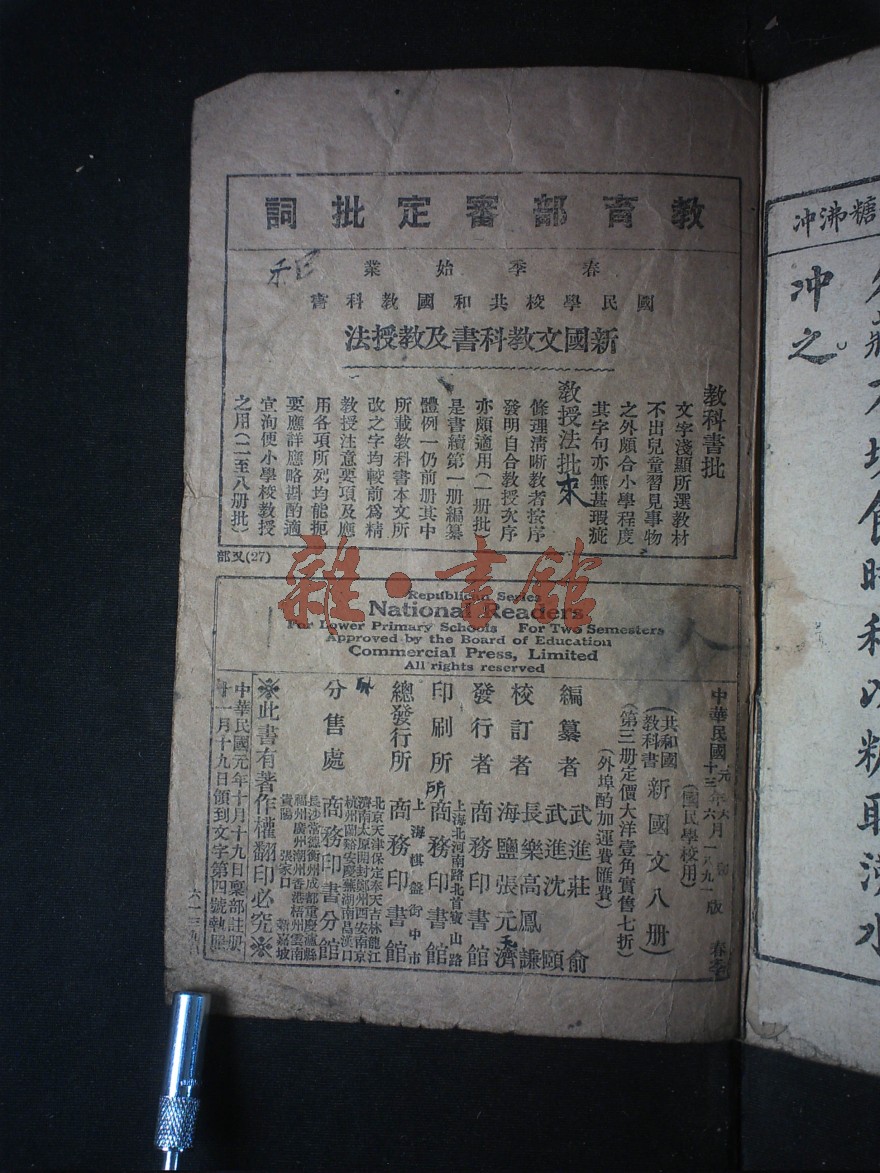 教育部審定批詞
春季始業
國民學校共和國教科書
新國文教科書及教授法
教科書批
文字淺顯所選教材
不出兒童習見事物
之外頗合小學程度
其字句亦無甚瑕疵
教授法批
條理清晰教者按序
發明自合教授次序
亦頗適用(一册批)
是書續第一册編纂
體例一仍前册其中
所載教科書本文所
改之字均較前爲精
教授注意要項及應
用各項所列均能扼
要應詳應略斟酌適
宜洵便小學校教授
之用(二至八册批)
部又(27)
雜·書館
Republican Series
National Readers
For Lower Primary Schools For Two Semesters
Approved by the Board of Education
Commercial Press, Limited
All rights reserved
中華民國
版 春季
(國民學校用)
(共和國教科書新國文八册)
(第三册定價大洋壹角實售七折)
(外埠酌加運費匯費)
編纂者 武進莊俞
武進沈頤
校訂者 長樂高鳳謙
海鹽張元濟
發行者 商務印書館
印刷所 上海北河南路北首寶山路
商務印書館
總發行所 上海棋盤街中市
商務印書館
分售處 北京天津保定奉天吉林龍江
濟南太原開封鄭州西安南京
杭州蘭谿安慶蕪湖南昌漢口
商務印書分館
長沙常德衡州成都重慶瀘縣
福州廣州潮州香港梧州雲南
貴陽 張家口 新嘉坡
※此書有著作權翻印必究※
中華民國元年十月十九日稟部註册
十一月十九日領到文字第四號執照
糖沸冲
食時和以糖取沸水
冲之。